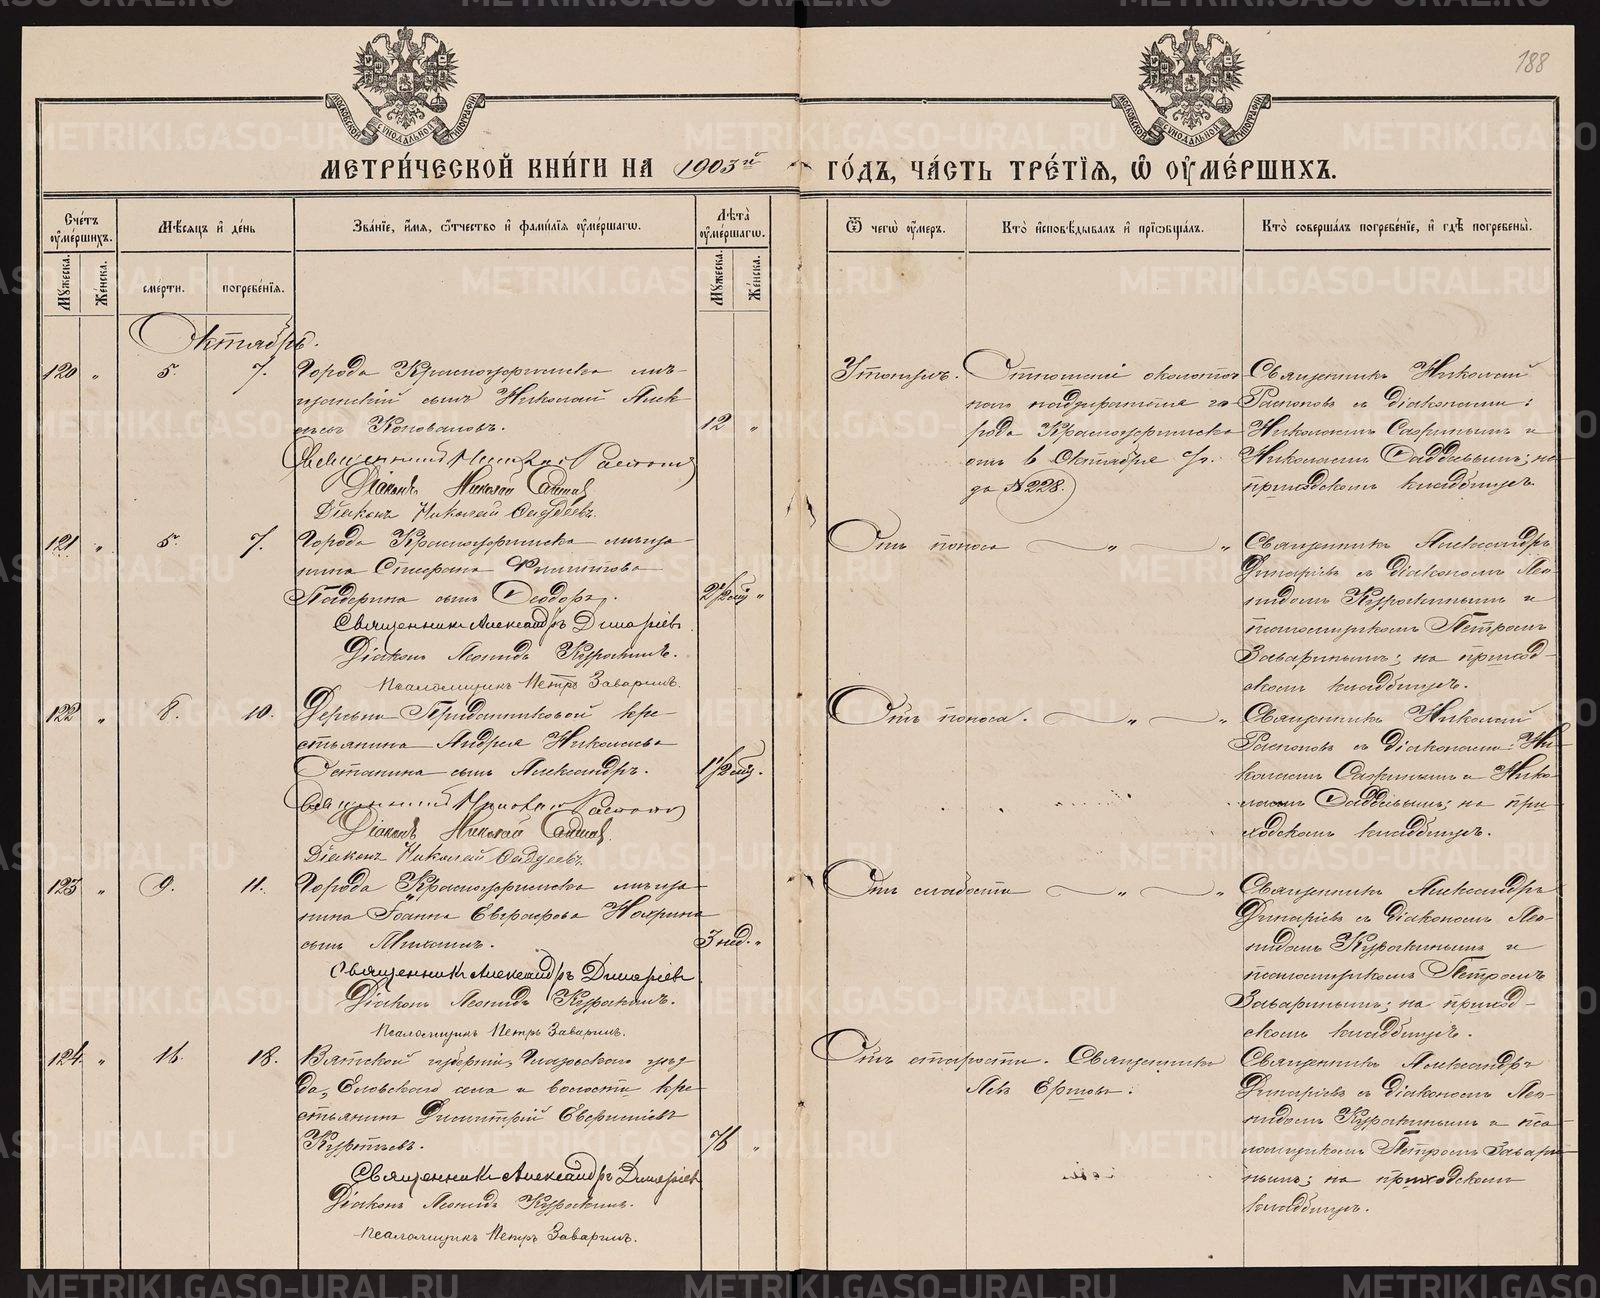 188
МОСКОВСКОЙ СѴНОДАЛЬНОЙ ТИПОГРАФІИ
МОСКОВСКОЙ СѴНОДАЛЬНОЙ ТИПОГРАФІИ
МЕТРИ́ЧЕСКОЙ КНИ́ГИ НА 1903й ГО́ДЪ, ЧА́СТЬ ТРЕ́ТІѦ, Ѡ҆ ОУ҆МЕ́РШИХЪ.
Сче́тъ оу҆ме́ршихъ.
Мꙋ́жеска.
Же́нска.
Мѣ́сяцъ и҆ де́нь
сме́рти.
погребе́нїѧ.
Зва́нїе, и҆́мѧ, ѻ҆́тчество и҆ фами́лїѧ оу҆ме́ршагѡ.
Лѣ́та оу҆ме́ршагѡ.
Мꙋ́жеска.
Же́нска.
Ѿ чегѡ̀ оу҆́меръ.
Кто̀ и҆сповѣ́дывалъ и҆ прїѡбща́лъ.
Кто̀ соверша́лъ погребе́нїе, и҆ гдѣ̀ погребены̀.
Октябрь.
120 " 5. 7. Города Красноуфимска мѣ-
щанскій сынъ Николай Алек
сѣевъ Коноваловъ. 12 "
Священникъ Николай Распопов
Діаконъ Николай
Діаконъ Николай Фаддѣевъ.
Утонулъ. Отношеніе околоточ
наго надзирателя го-
рода Красноуфимска
отъ 6 Октября с/г.
за №228.
Священникъ Николай
Распоповъ съ діаконами:
Николаемъ и
Николаемъ Фаддѣевымъ; на
приходскомъ кладбищѣ.
121 " 5. 7. Города Красноуфимска мѣща-
нина Стефана Филиппова
Падерина сынъ Ѳеодоръ. 2½ мѣс. "
Священникъ Александръ Динаріевъ
Діаконъ Леонидъ Курочкинъ.
Псаломщикъ Петръ Заваринъ.
Отъ поноса " "
Священникъ Александръ
Динаріевъ съ діакономъ Лео-
нидомъ Курочкинымъ и
псаломщикомъ Петромъ
Заваринымъ; на приход-
скомъ кладбищѣ.
122 " 8. 10. Деревни Приданниковой кре-
стьянина Андрея Николаева
Останина сынъ Александръ. 1½ мѣс. "
Священникъ Николай Распопов
Діаконъ Николай
Діаконъ Николай Фаддѣевъ.
Отъ поноса. " "
Священникъ Николай
Распоповъ съ діаконами: Ни-
колаемъ и Нико-
лаемъ Фаддѣевымъ; на при-
ходскомъ кладбищѣ.
123 " 9. 11. Города Красноуфимска мѣща-
нина Іоанна Евграфова
сынъ Михаилъ. 3 нед. "
Священникъ Александръ Динаріевъ
Діаконъ Леонидъ Курочкинъ.
Псаломщикъ Петръ Заваринъ.
Отъ слабости " "
Священникъ Александръ
Динаріевъ съ діакономъ Лео-
нидомъ Курочкинымъ и
псаломщикомъ Петромъ
Заваринымъ; на приход-
скомъ кладбищѣ.
124. " 16. 18. Вятской губерніи, Глазовскаго уѣз-
да, Еловскаго села и волости кре-
стьянинъ Димитрій
76 "
Священникъ Александръ Динаріевъ
Діаконъ Леонидъ Курочкинъ.
Псаломщикъ Петръ Заваринъ.
Отъ старости. Священникъ
Левъ Ершовъ.
Священникъ Александръ
Динаріевъ съ діакономъ Лео-
нидомъ Курочкинымъ и пса-
ломщикомъ Петромъ Завари-
нымъ; на приходскомъ
кладбищѣ.
METRIKI.GASO-URAL.RU